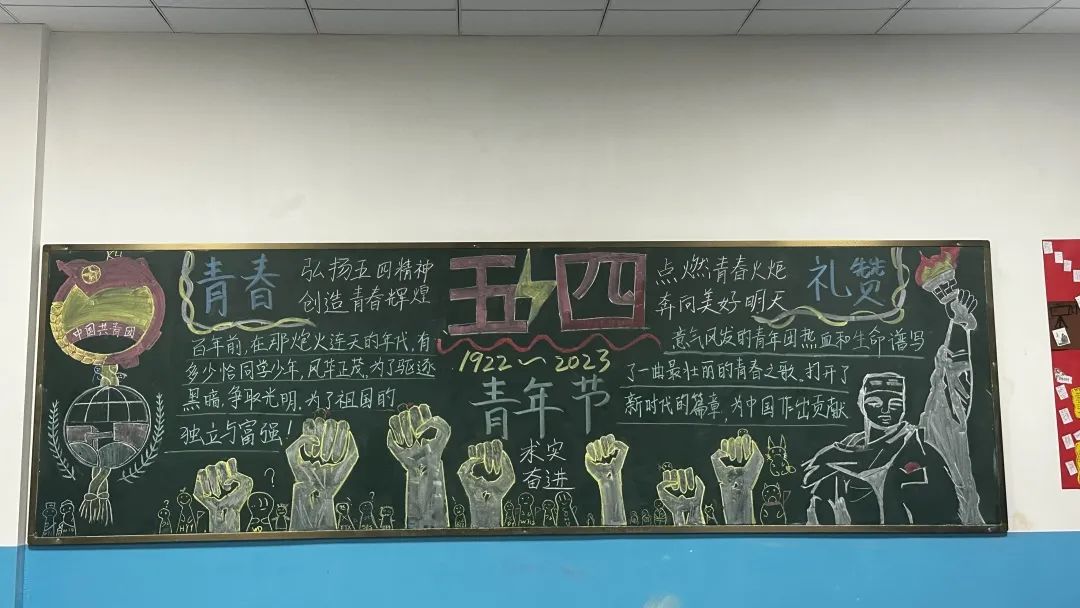 中国共青团
青春
弘扬五四精神
创造青春辉煌
百年前,在那炮火连天的年代,有
多少恰同学少年,风华正茂,为了驱逐
黑暗,争取光明,为了祖国的
独立与富强!
五四
1922~2023
青年节
求实
奋进
点燃青春火炬
奔向美好明天
礼赞
意气风发的青年团热血和生命谱写
了一曲最壮丽的青春之歌。打开了
新时代的篇章,为中国作出贡献
?